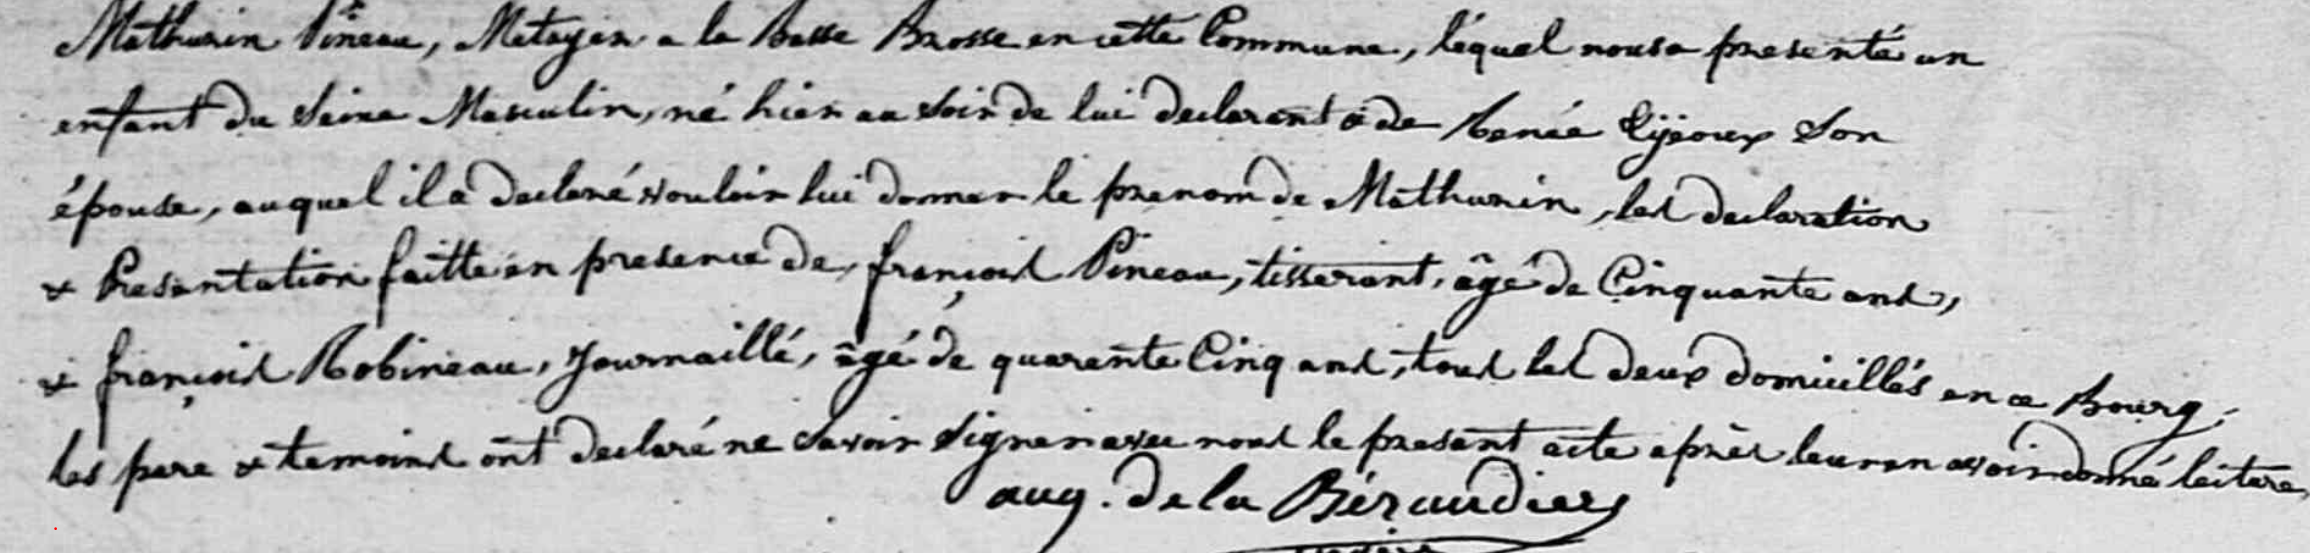 Mathurin Pineau, Metayer a la Basse Brosse en cette Commune, léquel nous a presenté un
enfant du Seixe Masculin, né hier au Soir de lui declarant & de Renée Lijeoux Son
épouse, auquel il a declaré vouloir lui donner le prenom de Mathurin, les declaration
& Presentation faitte en presence de, françois Pineau, tisserant, âgé de Cinquante ans,
& françois Robineau, Journaillé, âgé de quarente Cinq ans, tous les deux domicillés en ce Bourg,
les pere & temoins ont declaré ne Savoir Signer avec nous le present acte après leur en avoir donné lecture,
aug. de la Béraudiere